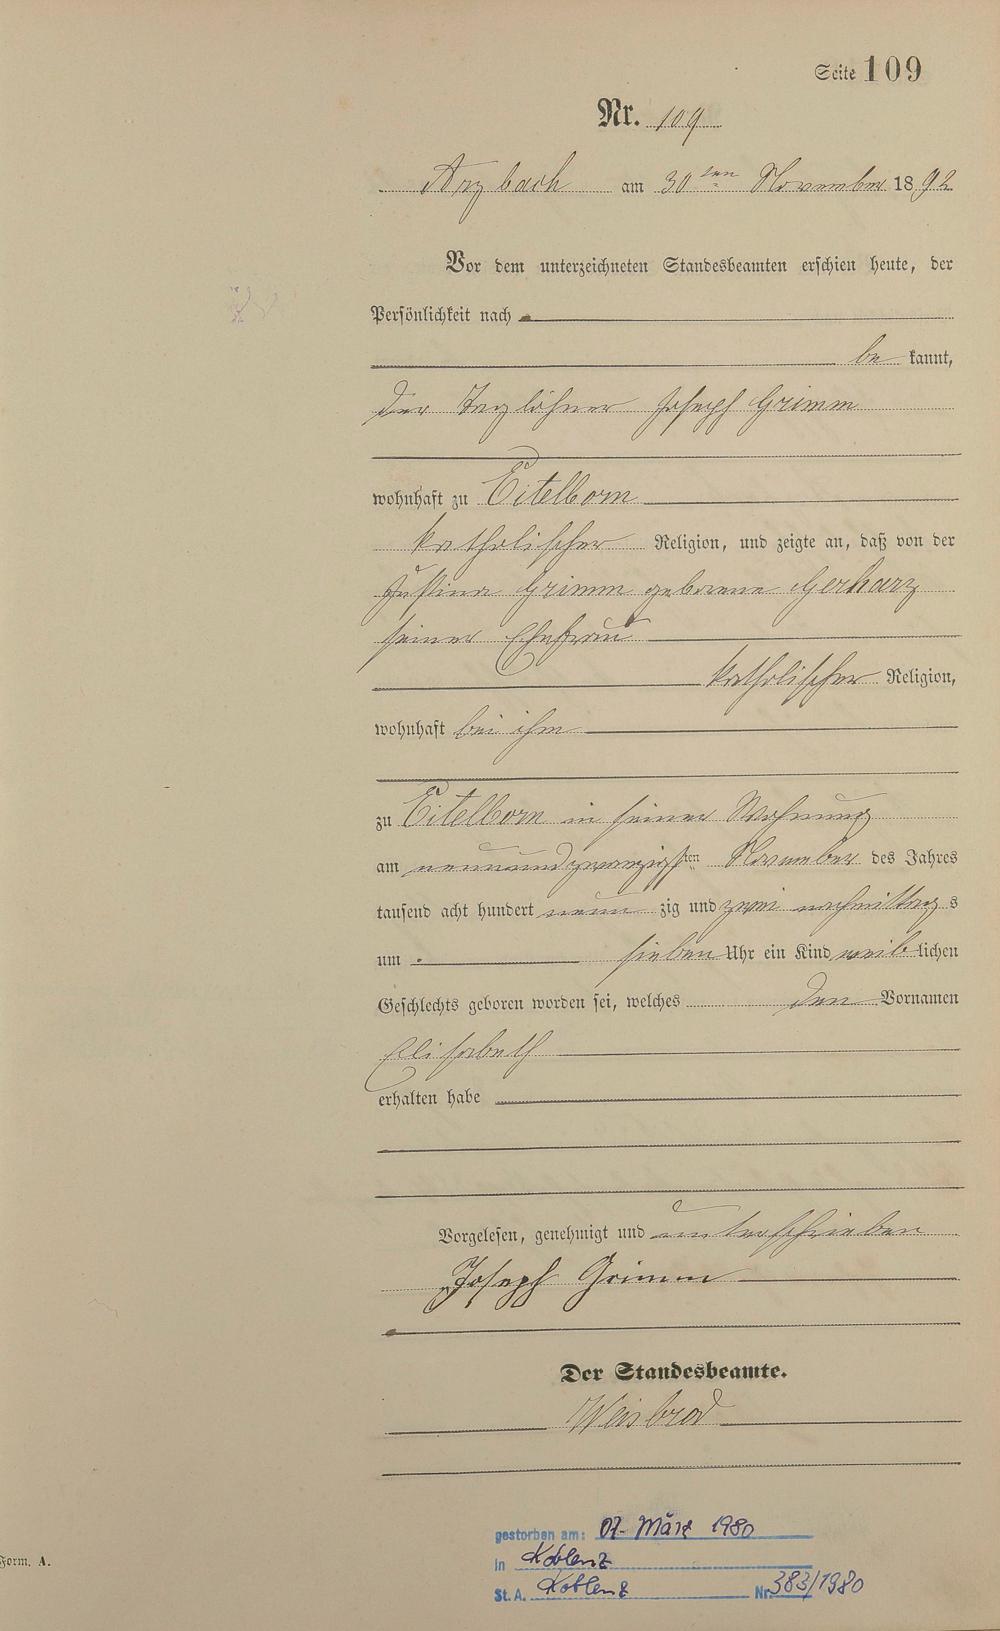 Seite 109
Nr. 109
Arzbach am 30ten November 1892
Vor dem unterzeichneten Standesbeamten erschien heute, der
Persönlichkeit nach
be kannt,
der Taglöhner Joseph Grimm
wohnhaft zu Eitelborn
katholischer Religion, und zeigte an, daß von der
Justina Grimm geborene Gerharz
seiner Ehefrau
katholischer Religion,
wohnhaft bei ihm
zu Eitelborn in seiner Wohnung
am neunundzwanzigsten November des Jahres
tausend acht hundert neun zig und zwei nachmittags
um sieben Uhr ein Kind weiblichen
Geschlechts geboren worden sei, welches den Vornamen
Elisabeth
erhalten habe
Vorgelesen, genehmigt und unterschrieben
Joseph Grimm
Der Standesbeamte.
Weisbrod
gestorben am: 07. März 1980
in Koblenz
St. A. Koblenz Nr. 383/1980
Form. A.